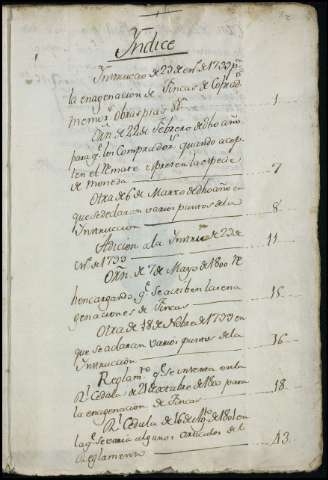 Yndice
Instruccion de 29 de en.º de 1799 p.ª
la enagenacion de Fincas de Cofrad.s
memor.s obras pias &.ª 1
Orn. de 22 de Febrero de dho año
para q.e los Compradores quando acep-
ten el Remate expresen la especie
de moneda 7
Otra de 6 de Marzo de dho año en
que se declaran varios puntos de la
Instruccion 8
Adicion a la Instruc.on de 29 de
En.º de 1799 11
Orn. de 7 de Mayo de 1800 Re
encargando q.e se activen las ena
genaciones de Fincas 15
Otra de 18 de Nobre de 1799 en
que se aclaran varios puntos de la
Instruccion 16
Reglam.to q.e se inserta en la
R.l Cedula de 21 de octubre de 1800 para
la enagenacion de Fincas 18
R.l Cedula de 16 de de 1801 en
la q.e se varia algunos articulos del
Reglamento 43